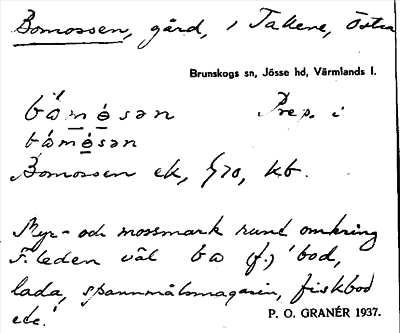 Bomossen, gård, i Takene, Östra
Brunskogs sn, Jösse hd, Värmlands l.
bómósən Prep. i
bómósən
Bomossen ek, 1/70, kb.
Myr- och mossmark runt omkring
F. leden väl bo (f.) 'bod,
lada, spannmålsmagasin, fiskbod
etc.'
P. O. GRANÉR 1937.